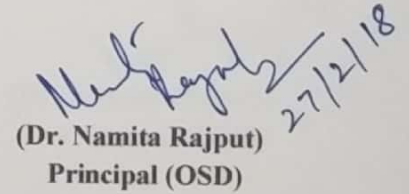 27/2/18
(Dr. Namita Rajput)
Principal (OSD)